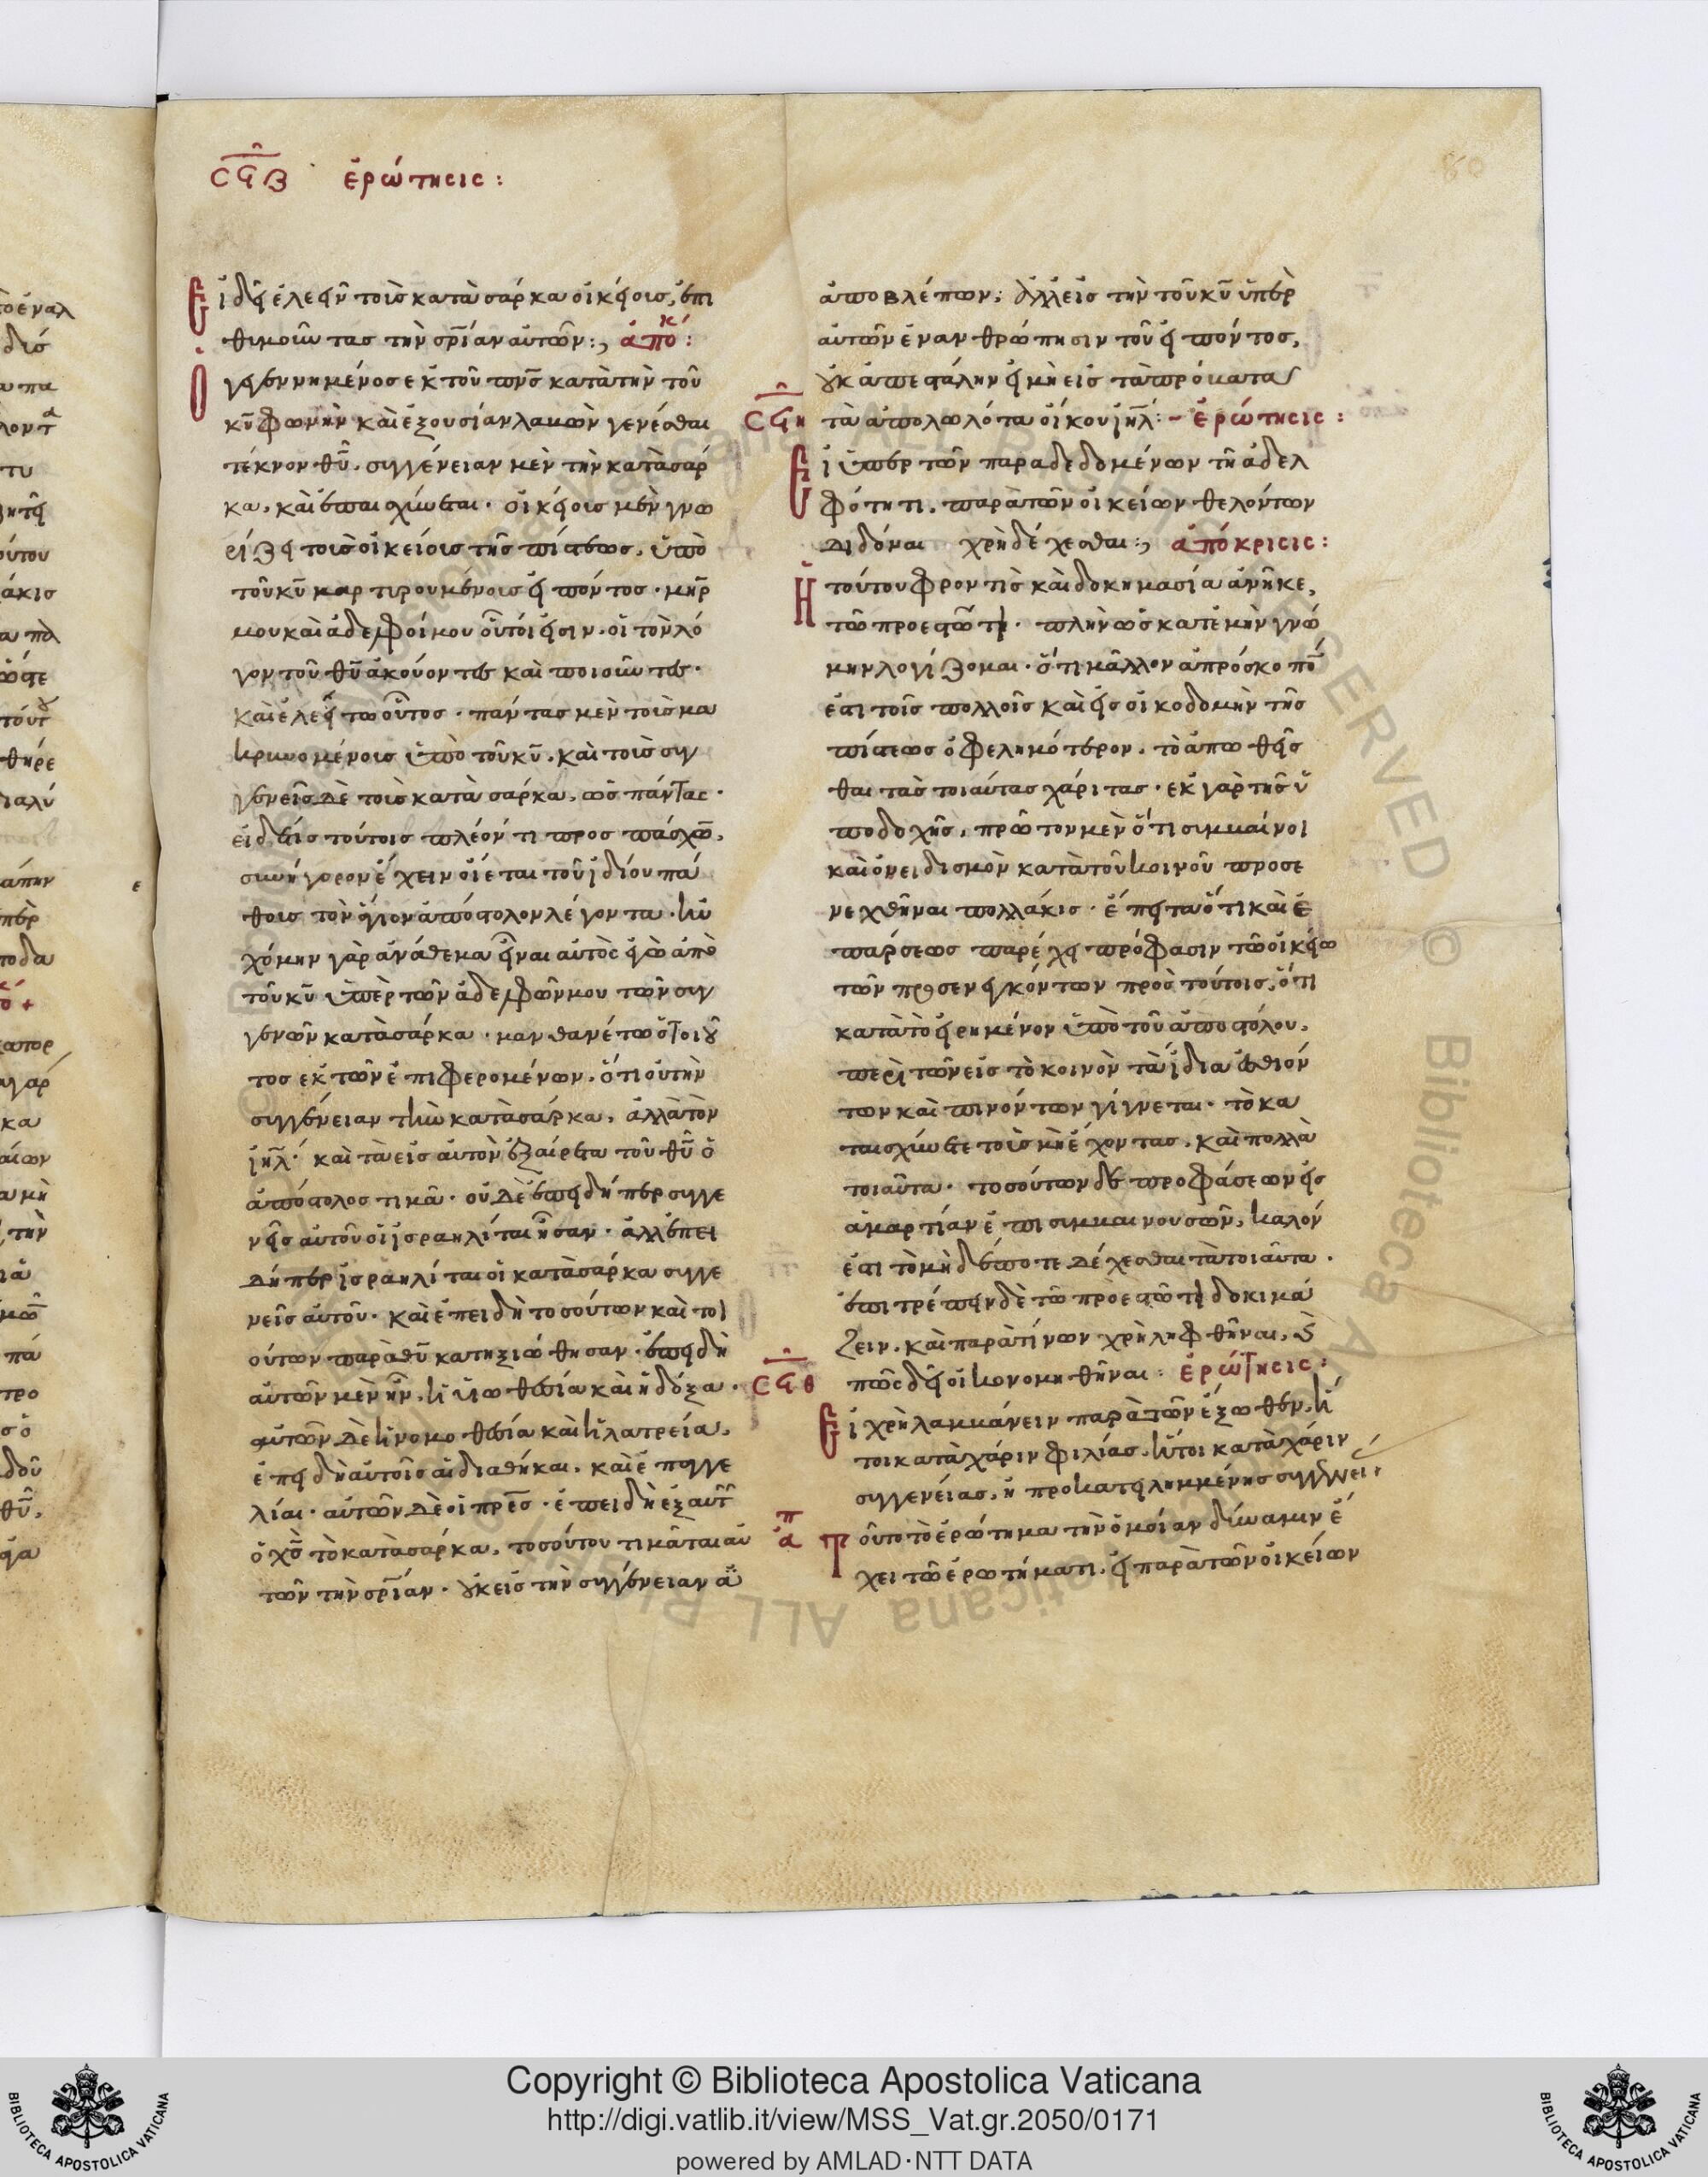 ϲϟβ ἐρώτησις:
Εἰ δεῖ ἐλεεῖν τοῖς κατὰ σάρκα οἰκείοις, ἐπι
θυμοῦντας τὴν σρίαν αὐτῶν:, ἀποκ:
Ὁ γεγεννημένος ἐκ τοῦ πνς κατὰ τὴν τοῦ
κυ φωνὴν καὶ ἐξουσίαν λαβὼν γενέσθαι
τέκνον θυ, συγγένειαν μὲν τὴν κατὰ σάρ
κα, καὶ ἐπαισχύνεται· οἰκείοις μὲν γνω
ρίζει τοῖς οἰκείοις τῆς πίστεως, ὑπὸ
τοῦ κυ μαρτυρουμένοις εἰπόντος· μηρ
μου καὶ ἀδελφοί μου οὗτοί εἰσιν· οἱ τὸν λό
γον τοῦ θυ ἀκούοντες καὶ ποιοῦντες·
καὶ ἐλεείτω οὗτος· πάντας μὲν τοῖς μα
κρυνομένοις ὑπὸ τοῦ κυ, καὶ τοῖς συγ
γενεῖς δὲ τοῖς κατὰ σάρκα, ὡς πάντας·
εἰ δέ τις τούτοις πλέόν τι προσπάσχων,
συνήγορον ἔχειν οἴεται τοῦ ἰδίου πά
θοις τὸν ἅγιον ἀπόστολον λέγοντα· ηὐ
χόμην γὰρ ἀνάθεμα εἶναι αὐτὸς ἐγὼ ἀπὸ
τοῦ κυ ὑπὲρ τῶν ἀδελφῶν μου τῶν συγ
γενῶν κατὰ σάρκα· μανθανέτω ὁ τοιοῦ
τος ἐκ τῶν ἐπιφερομένων, ὅτι οὐ τὴν
συγγένειαν τὴν κατὰ σάρκα, ἀλλὰ τὸν
ιηλ· καὶ τὰ εἰς αὐτὸν ἐξαίρετα τοῦ θυ ὁ
ἀπόστολος τιμᾶ· οὐδὲ ἐπειδήπερ συγγε
νεῖς αὐτοῦ οἱ ἰσραηλίται ἦσαν· ἀλλ' ἐπει
δήπερ ἰσραηλίται οἱ κατὰ σάρκα συγγε
νεῖς αὐτοῦ· καὶ ἐπειδὴ τοσούτων καὶ τοι
ούτων παρὰ θυ κατηξιώθησαν· ἐπειδὴ
αὐτῶν μὲν ἦν, ἡ υἱοθεσία καὶ ἡ δόξα·
αὐτῶν δὲ ἡ νομοθεσία καὶ ἡ λατρεία,
ἐπειδὴ αὐτοῖς αἱ διαθήκαι, καὶ ἐπαγγε
λίαι· αὐτῶν δὲ οἱ πρες· ἐπειδὴ ἐξ αὐτῶν
ὁ χς τὸ κατὰ σάρκα, τοσούτου τιμᾶται αὐ
τῶν τὴν σρίαν· οὐκ εἰς τὴν συγγένειαν αὐ
ἀποβλέπων; ἀλλ' εἰς τὴν τοῦ κυ ὑπὲρ
αὐτῶν ἐνανθρώπησιν τοῦ εἰπόντος,
οὐκ ἀπεστάλην εἰ μὴ εἰς τὰ πρόβατα
ϲϟη τὰ ἀπολωλότα οἴκου ιηλ:- ἐρώτησις:
Εἰ ὑπὲρ τῶν παραδεδομένων τῆ ἀδελ
φότητι, παρὰ τῶν οἰκείων θελόντων
διδόναι χρὴ δέχεσθαι:, ἀπόκρισις:
Ἡ τούτου φροντὶς καὶ δοκημασία ἀνῆκε,
τῶ προεστῶτι· πλὴν ὡς κατ' ἐμὴν γνώ
μην λογίζομαι· ὅτι μᾶλλον ἀπρόσκοπον
ἐστι τοῖς πολλοῖς καὶ εἰς οἰκοδομὴν τῆς
πίστεως ὀφελημότερον, τὸ ἀπωθεῖσ
θαι τὰς τοιαύτας χάριτας· ἐκ γὰρ τῆς ὑ
ποδοχῆς, πρῶτον μὲν ὅτι συμβαίνοι
καὶ ὀνειδισμὸν κατὰ τοῦ κοινοῦ προσε
νεχθῆναι πολλάκις· ἔπειτα ὅτι καὶ ἐ
πάρσεως παρέχει πρόφασιν τῶ οἰκείω
τῶν προσενεγκόντων πρὸς τούτοις, ὅτι
κατὰ τὸ εἰρημένον ὑπὸ τοῦ ἀποστόλου,
περὶ τῶν εἰς τὸ κοινὸν τὰ ἴδια ἐσθιόν
των καὶ πινόντων γίγνεται· τὸ κα
ταισχύνεσθε τοῖς μὴ ἔχοντας, καὶ πολλὰ
τοιαῦτα· τοσούτων δὲ προφάσεων εἰς
ἁμαρτίαν ἐπισυμβαινουσῶν, καλόν
ἐστι τὸ μηδέποτε δέχεσθαι τὰ τοιαῦτα·
ἐπιτρέπειν δὲ τῶ προεστῶτι δοκιμά
ζειν, καὶ παρὰ τίνων χρὴ ληφθῆναι, καὶ
ϲϟθ πῶς δεῖ οἰκονομηθῆναι: ἐρώτησις:
Εἰ χρὴ λαμβάνειν παρὰ τῶν ἔξωθεν, ἤ
τοι κατὰ χάριν φιλίας, ἤτοι κατὰ χάριν
συγγενείας, ἢ προκατειλημμένης
ἀπ Τοῦτο τὸ ἐρώτημα τὴν ὁμοίαν δύναμιν ἔ
χει τῶ ἐρωτήματι, εἰ παρὰ τῶν οἰκείων
Copyright © Biblioteca Apostolica Vaticana
http://digi.vatlib.it/view/MSS_Vat.gr.2050/0171
powered by AMLAD·NTT DATA
BIBLIOTECA APOSTOLICA VATICANA
BIBLIOTECA APOSTOLICA VATICANA